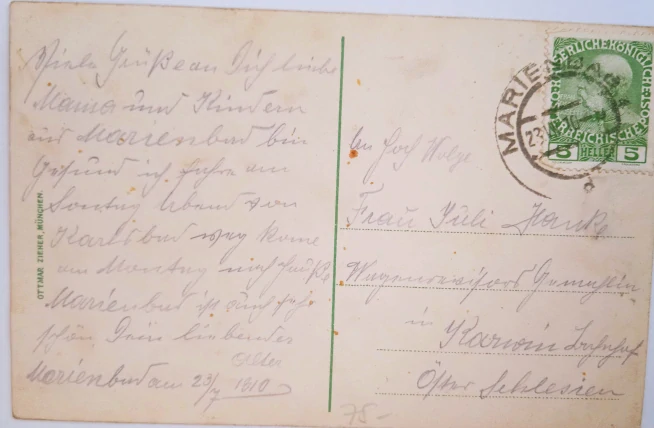 Viele Grüße an Dich liebe
Mama und Kindern
aus Marienbad bin
Gesund ich fahre am
Sontag Abend von
Karlsbad weg kome
am Montag nach Hauße
Marienbad ist auch sehr
schön Dein liebender
Alter
Marienbad am 23/7 1910
OTTMAR ZIEHER, MÜNCHEN.
MARIENBAD
23
KAISERLICHE KÖNIGLICHE
ÖSTERREICHISCHE
5 HELLER 5
An Hoch Wolge
Frau Juli Hanke
Wagenrevisors Gemahlin
in Karwin Bahnhof
Öster Schlesien
75-